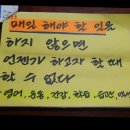 매일 해야 할 일을
하지 않으면
언젠가 하고자 할 때
할 수 없다
영어, 운동, 건강, 학습, 습관,